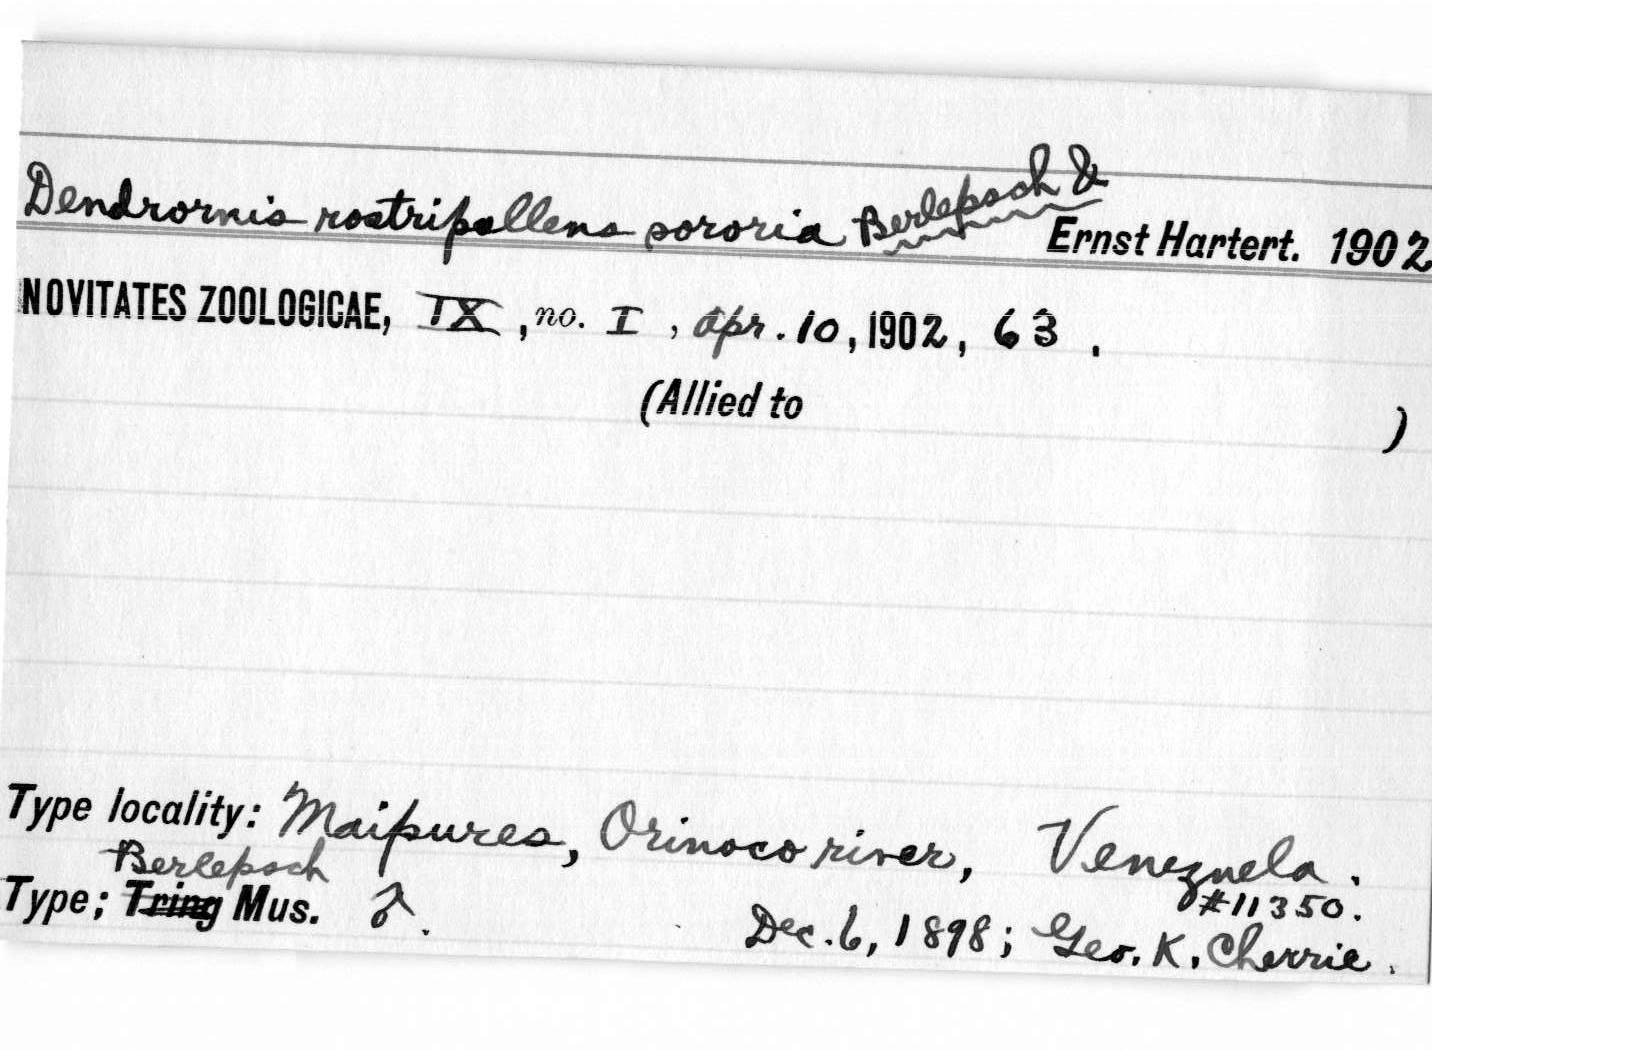 Dendrornis rostripallens sororia Berlepsch &
Ernst Hartert. 1902
NOVITATES ZOOLOGICAE, IX, no. I, Apr. 10, 1902, 63.
(Allied to )
Type locality: Maipures, Orinoco river, Venezuela.
Berlepsch
#11350.
Type; Tring Mus. ♂.
Dec. 6, 1898; Geo. K. Cherrie.